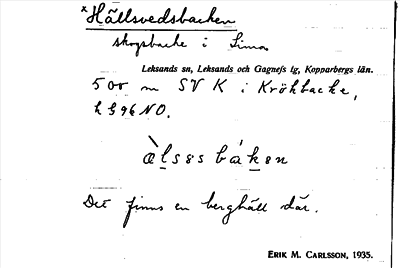 *Hällsvedsbacken
skogsbacke i Limo
Leksands sn, Leksands och Gagnefs tg, Kopparbergs län.
500 m SV K i Kröhbacke,
h G96 NO.
Det finns en berghäll där.
ERIK M. CARLSSON, 1935.